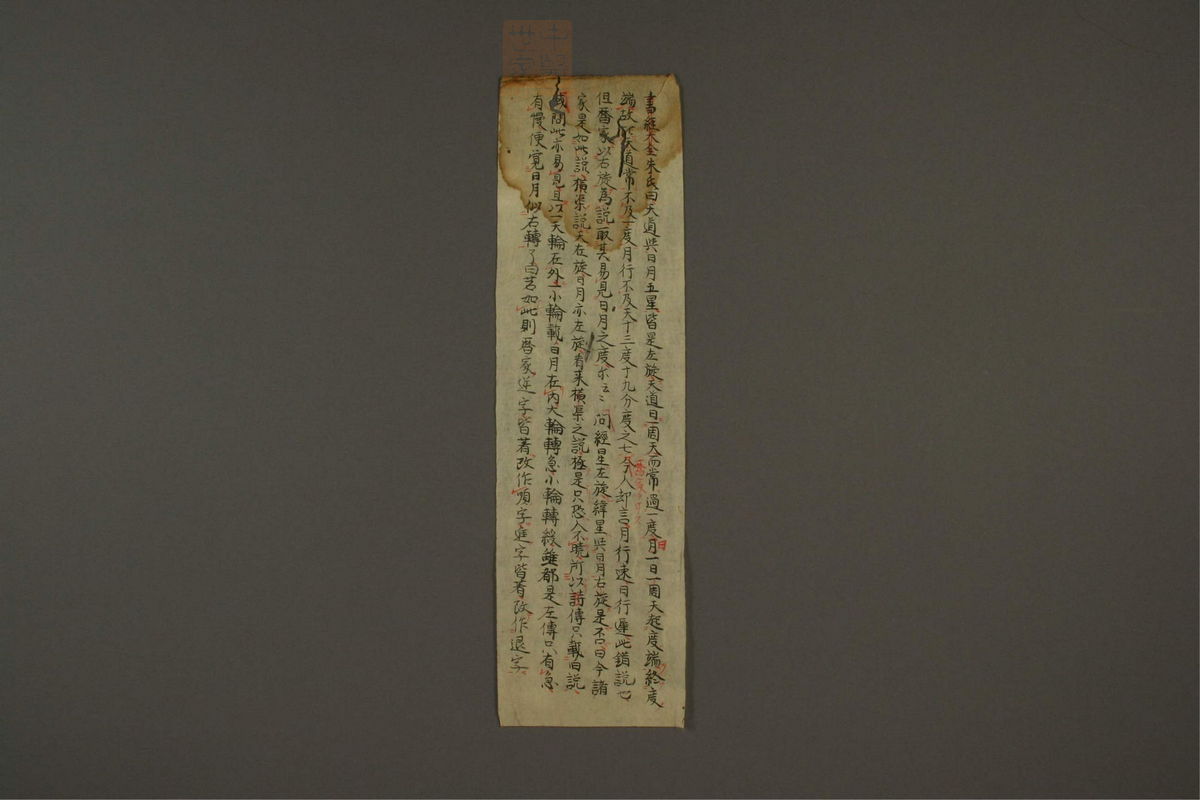 書経大全朱氏曰天道与日月五星皆是左旋天道日一周天而常過一度月一日一周天起度端終度
端故比天道常不及一度月行不及天十三度十九分度之七今人却言月行速日行遅此錯説也
但暦家以右旋為説取其易見日月之度尓云々 問経星左旋緯星与日月右旋是否曰今諸
家是如此説横渠説天左旋日月亦左旋看来横渠之説極是只恐人不暁所以詩傳只載旧説
或問此亦易見且以一大輪在外一小輪載日月在内大輪轉急小輪轉緩雖都是左傳只有急
有慢便覚日月似右轉了曰若如此則暦家逆字皆着改作順字進字皆着改作退字
日